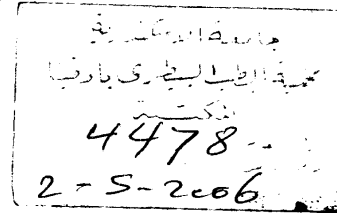 جامعة الاسكندرية
كلية الطب البيطرى بادفينا
المكتبة
4478
2-5-2006